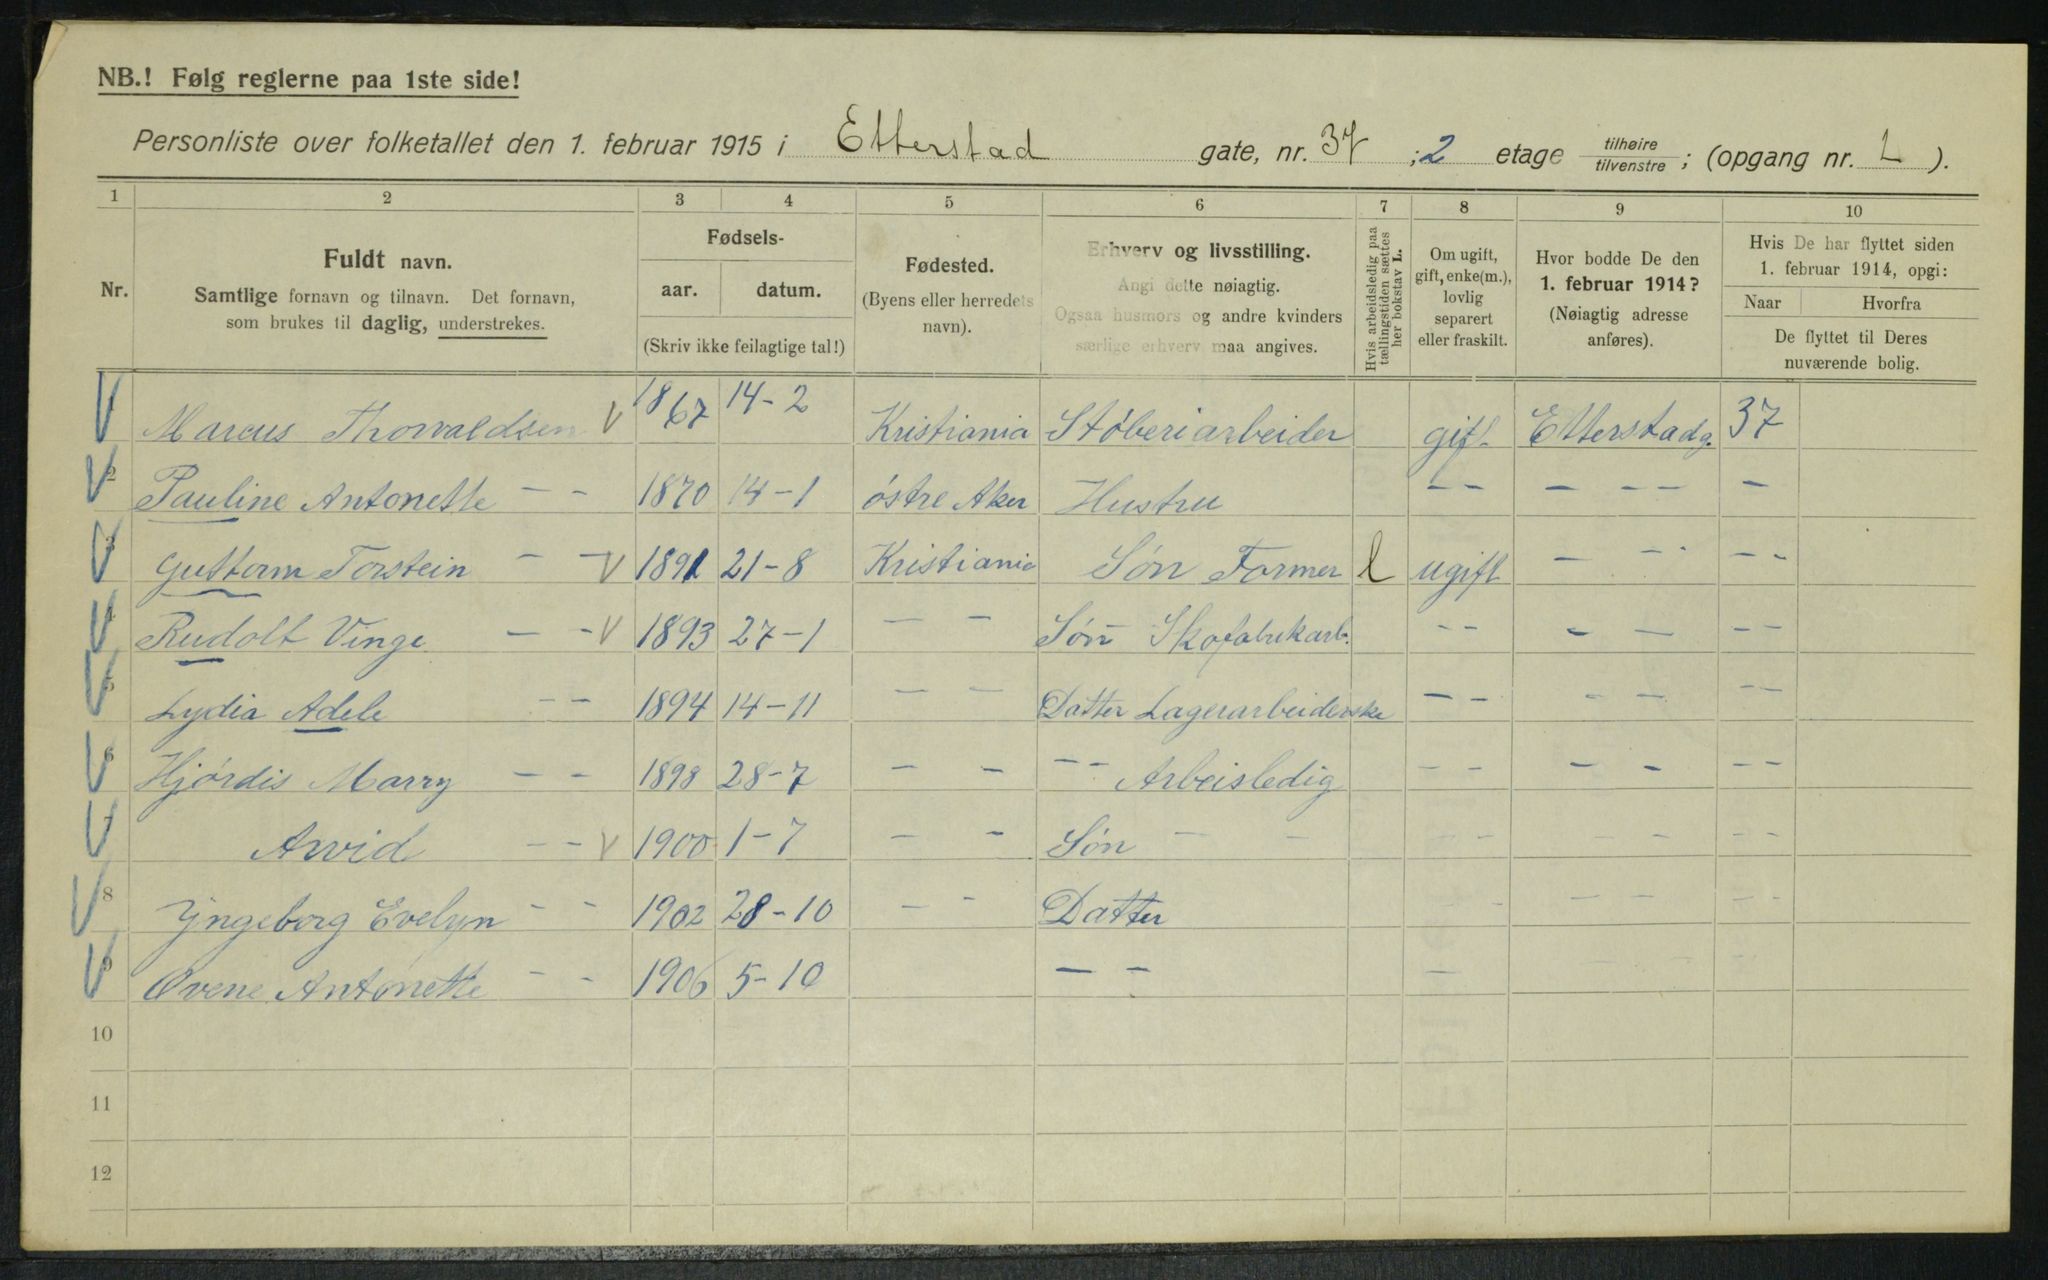 NB.! Følg reglerne paa 1ste side!
Personliste over folketallet den 1. februar 1915 i Etterstad gate, nr. 37 ; 2 etage tilhøire tilvenstre ; (opgang nr. 1 ).
1 2 3 4 5 6 7 8 9 10
Nr.
Fuldt navn.
Samtlige fornavn og tilnavn. Det fornavn,
som brukes til daglig, understrekes.
Fødsels-
aar. datum.
(Skriv ikke feilagtige tal!)
Fødested.
(Byens eller herredets
navn).
Erhverv og livsstilling.
Angi dette nøiagtig.
Ogsaa husmors og andre kvinders
særlige erhverv maa angives.
Hvis arbeidsledig paa
tællingstiden sættes
her bokstav L.
Om ugift,
gift, enke(m.),
lovlig
separert
eller fraskilt.
Hvor bodde De den
1. februar 1914?
(Nøiagtig adresse
anføres).
Hvis De har flyttet siden
1. februar 1914, opgi:
Naar Hvorfra
De flyttet til Deres
nuværende bolig.
Marcus Thorvaldsen V 1867 14-2 Kristiania Støberiarbeider gift Etterstadg. 37
2 Pauline Antonette - - 1870 14-1 østre Aker Hustru - - - - - -
3 Guttorm Torstein - - V 1891 21-8 Kristiania Søn Former l ugift - - - -
4 Rudolt Vinge - - V 1893 27-1 - - Søn Skofabrikarb. - - - - - -
5 Lydia Adele - - 1894 14-11 - - Datter Lagerarbeiderske - - - - - -
6 Hjórdis Marry - - 1898 28-7 - - - - Arbeisledig - - - - - -
7 Arvid - - V 1900 1-7 - - Søn - - - - - - - -
8 Yngeborg Evelyn - - 1902 28-10 - - Datter - - - - - -
9 Ovene Antonette - - 1906 5-10 - - - - - - -
10
11
12